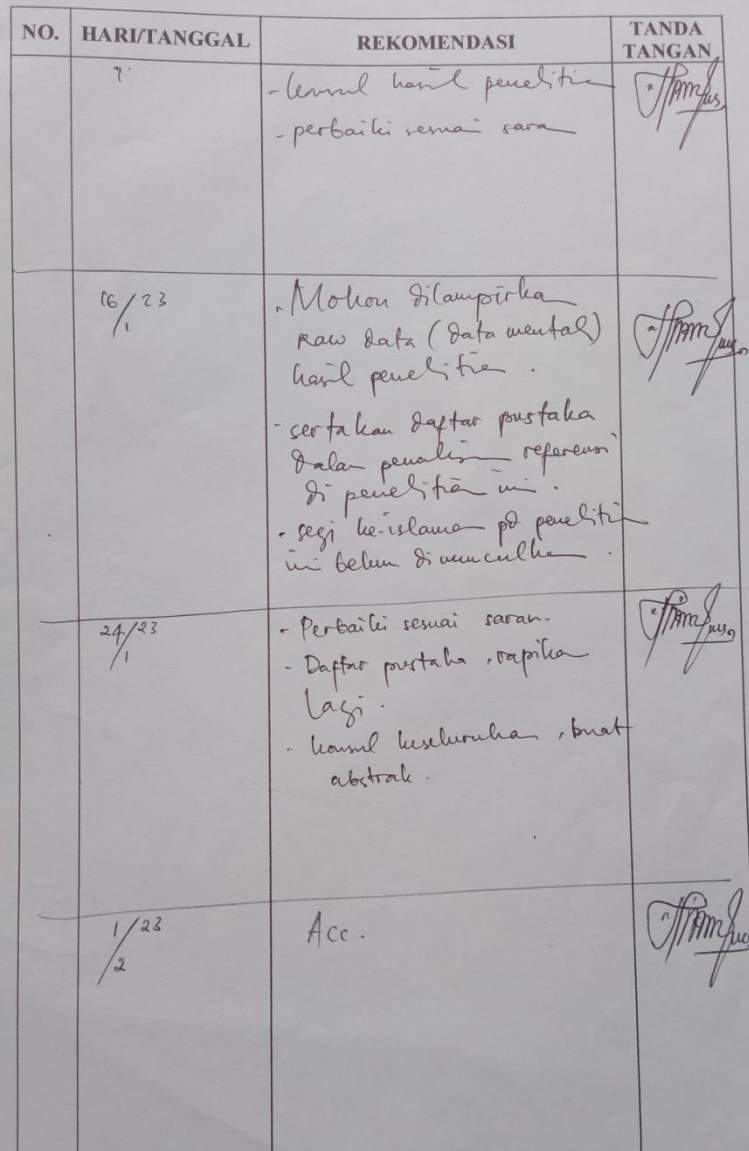 NO. HARI/TANGGAL REKOMENDASI TANDA TANGAN
- konsul hasil penelitian
- perbaiki sesuai saran
16/1 23
- Mohon dilampirkan
raw data (data mentah)
hasil penelitian.
- sertakan daftar pustaka
dalam penulisan referensi
di penelitian ini.
- segi ke-islaman pd penelitian
ini belum dimunculkan.
24/1 23
- Perbaiki sesuai saran.
- Daftar pustaka, rapikan
lagi.
- konsul keseluruhan, buat
abstrak.
1/2 23
Acc.